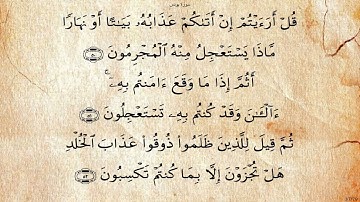 سورة يونس
قُلْ أَرَءَيْتُمْ إِنْ أَتَىٰكُمْ عَذَابُهُۥ بَيَـٰتًا أَوْ نَهَارًا
مَّاذَا يَسْتَعْجِلُ مِنْهُ ٱلْمُجْرِمُونَ ۝٥٠
أَثُمَّ إِذَا مَا وَقَعَ ءَامَنتُم بِهِۦٓ ۚ
ءَآلْـَٔـٰنَ وَقَدْ كُنتُم بِهِۦ تَسْتَعْجِلُونَ ۝٥١
ثُمَّ قِيلَ لِلَّذِينَ ظَلَمُوا۟ ذُوقُوا۟ عَذَابَ ٱلْخُلْدِ
هَلْ تُجْزَوْنَ إِلَّا بِمَا كُنتُمْ تَكْسِبُونَ ۝٥٢